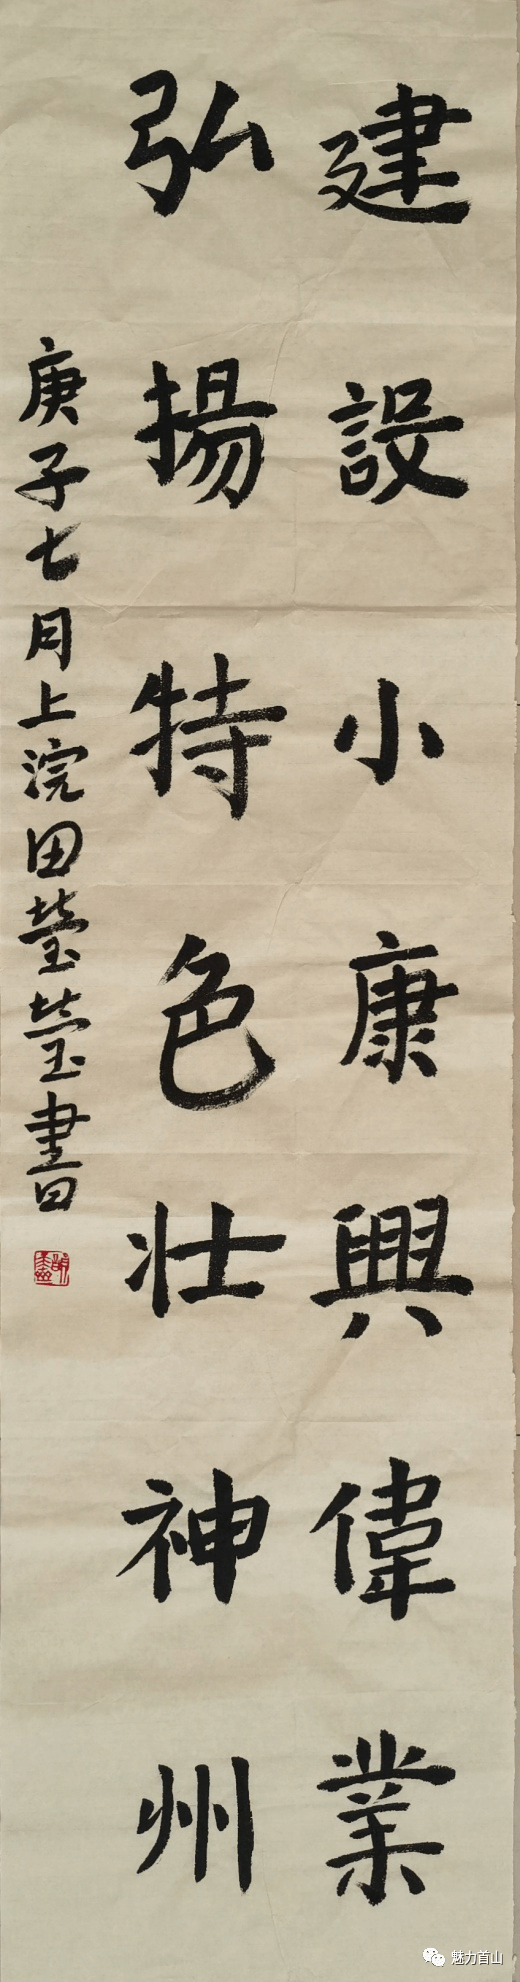 建設小康興偉業
弘揚特色壯神州
庚子七月上浣田瑩瑩書
魅力首山